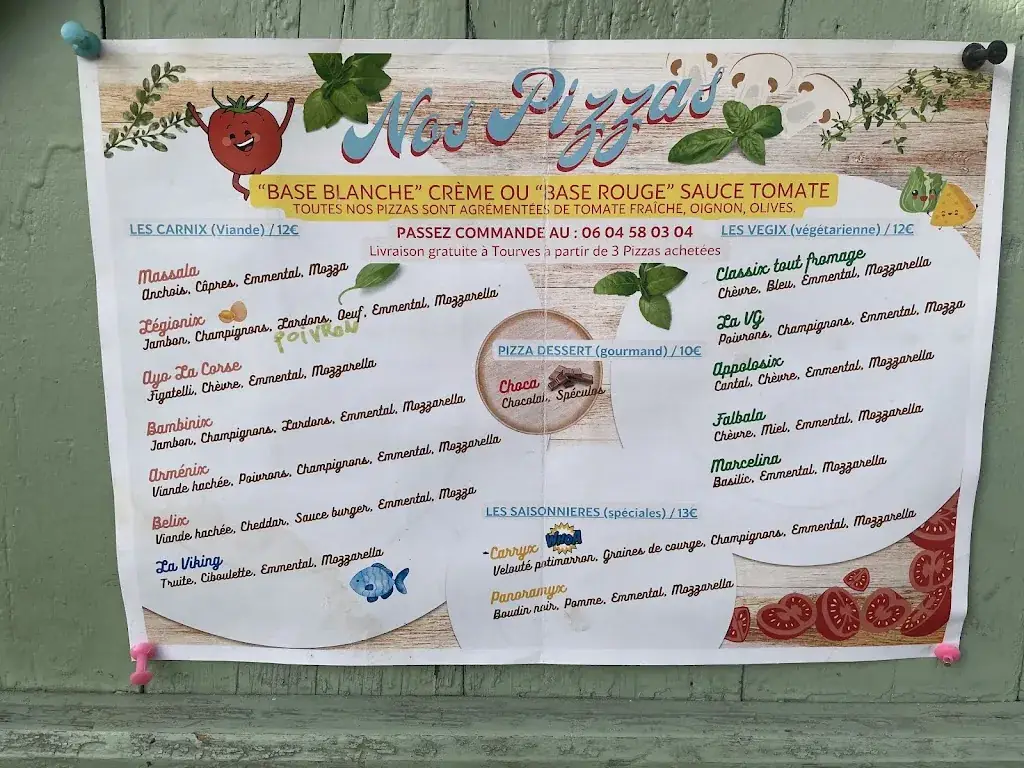 Nos Pizzas
“BASE BLANCHE” CRÈME OU “BASE ROUGE” SAUCE TOMATE
TOUTES NOS PIZZAS SONT AGRÉMENTÉES DE TOMATE FRAÎCHE, OIGNON, OLIVES.
PASSEZ COMMANDE AU : 06 04 58 03 04
Livraison gratuite à Tourves à partir de 3 Pizzas achetées
LES CARNIX (Viande) / 12€
Massala
Anchois, Câpres, Emmental, Mozza
Légionix
Jambon, Champignons, Lardons, Oeuf, Emmental, Mozzarella
POIVRON
Ayo La Corse
Figatelli, Chèvre, Emmental, Mozzarella
Bambinix
Jambon, Champignons, Lardons, Emmental, Mozzarella
Arménix
Viande hachée, Poivrons, Champignons, Emmental, Mozzarella
Belix
Viande hachée, Cheddar, Sauce burger, Emmental, Mozza
La Viking
Truite, Ciboulette, Emmental, Mozzarella
PIZZA DESSERT (gourmand) / 10€
Choca
Chocolat, Spéculos
LES SAISONNIERES (spéciales) / 13€
-Carryx
WHOA!
Velouté potimarron, Graines de courge, Champignons, Emmental, Mozzarella
Panoramyx
Boudin noir, Pomme, Emmental, Mozzarella
LES VEGIX (végétarienne) / 12€
Classix tout fromage
Chèvre, Bleu, Emmental, Mozzarella
La VG
Poivrons, Champignons, Emmental, Mozza
Appolosix
Cantal, Chèvre, Emmental, Mozzarella
Falbala
Chèvre, Miel, Emmental, Mozzarella
Marcelina
Basilic, Emmental, Mozzarella